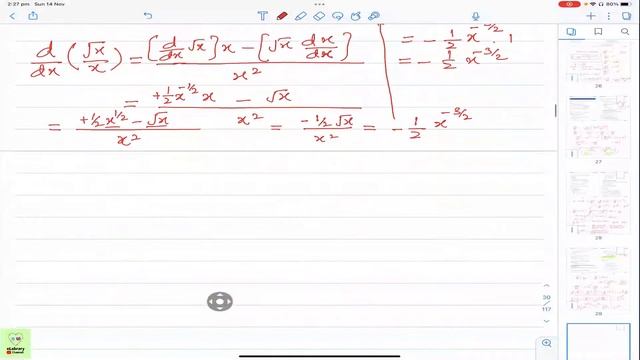 2:27 pm Sun 14 Nov
80%
d/dx (√x/x) = {[d/dx √x] x − [√x dx/dx]} / x²
= (+½ x^(−1/2) x − √x) / x²
= (+½ x^(1/2) − √x) / x² = (−½ √x) / x² = −½ x^(−3/2)
= −½ x^(−1/2) · 1
= −½ x^(−3/2)
26
27
28
29
30
117
eLibrary
Channel